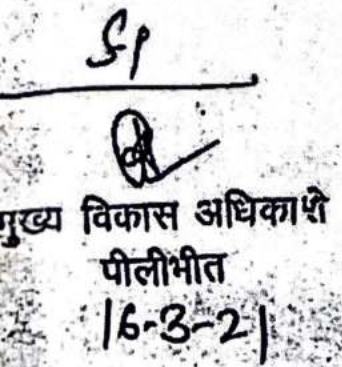 मुख्य विकास अधिकारी
पीलीभीत
16-3-21